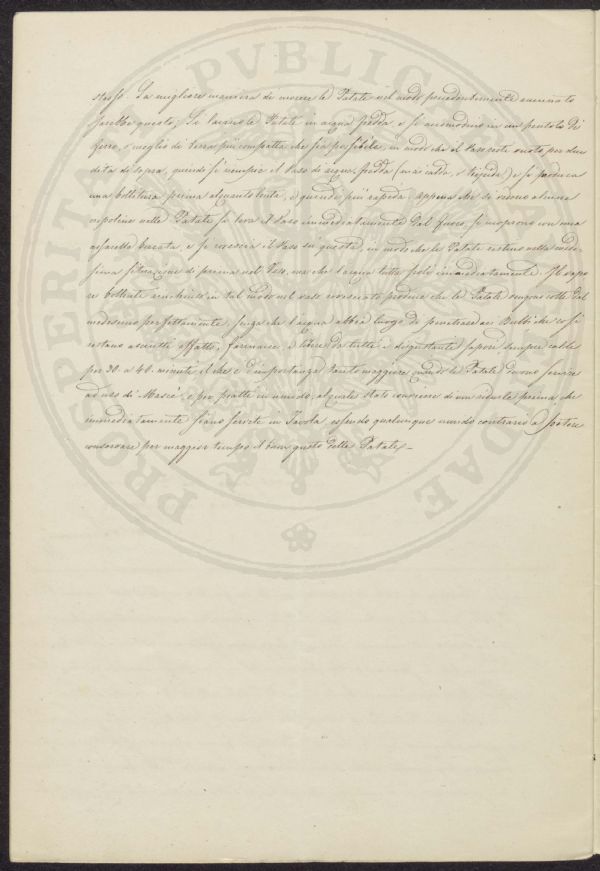 stesso. La migliore maniera di cuocere le Patate nel modo precedentemente accennato
sarebbe questo; Si lavano le Patate in acqua fredda, e si accomodano in un pentolo di
ferro, o meglio di terra più compatta che sia possibile, in modo che il Vaso resti vuoto per due
dita di sopra, quindi si riempie il Vaso di acqua fredda (mai calda, o tiepida) e si produca
una bollitura prima alquanto lenta, e quindi più rapida, appena che si vedono alcune
crepoline nelle Patate si leva il Vaso immediatamente dal fuoco, si cuoprono con una
assicella bucata e si rovescia il Vaso su questa, in modo che le Patate restino nella medesima
situazione di prima nel Vaso, ma che l'acqua tutta scoli immediatamente. Il vapore
bollente rinchiuso in tal modo nel vaso rovesciato produce che le Patate vengono cotte dal
medesimo perfettamente, senza che l'acqua abbia luogo di penetrare nei Bulbi che così
restano asciutti affatto, farinacei, e liberi da tutti i disgustanti sapori sempre caldi
per 30 a 40 minuti, il che è d'importanza tanto maggiore quando le Patate devono servire
ad uso di e per piatto in umido, al quale Stato conviene di non ridurle prima che
immediatamente siano servite in Tavola, essendo qualunque modo contrario a potere
conservare per maggior tempo il buon gusto delle Patate.
PROSPERITATI PVBLICAE